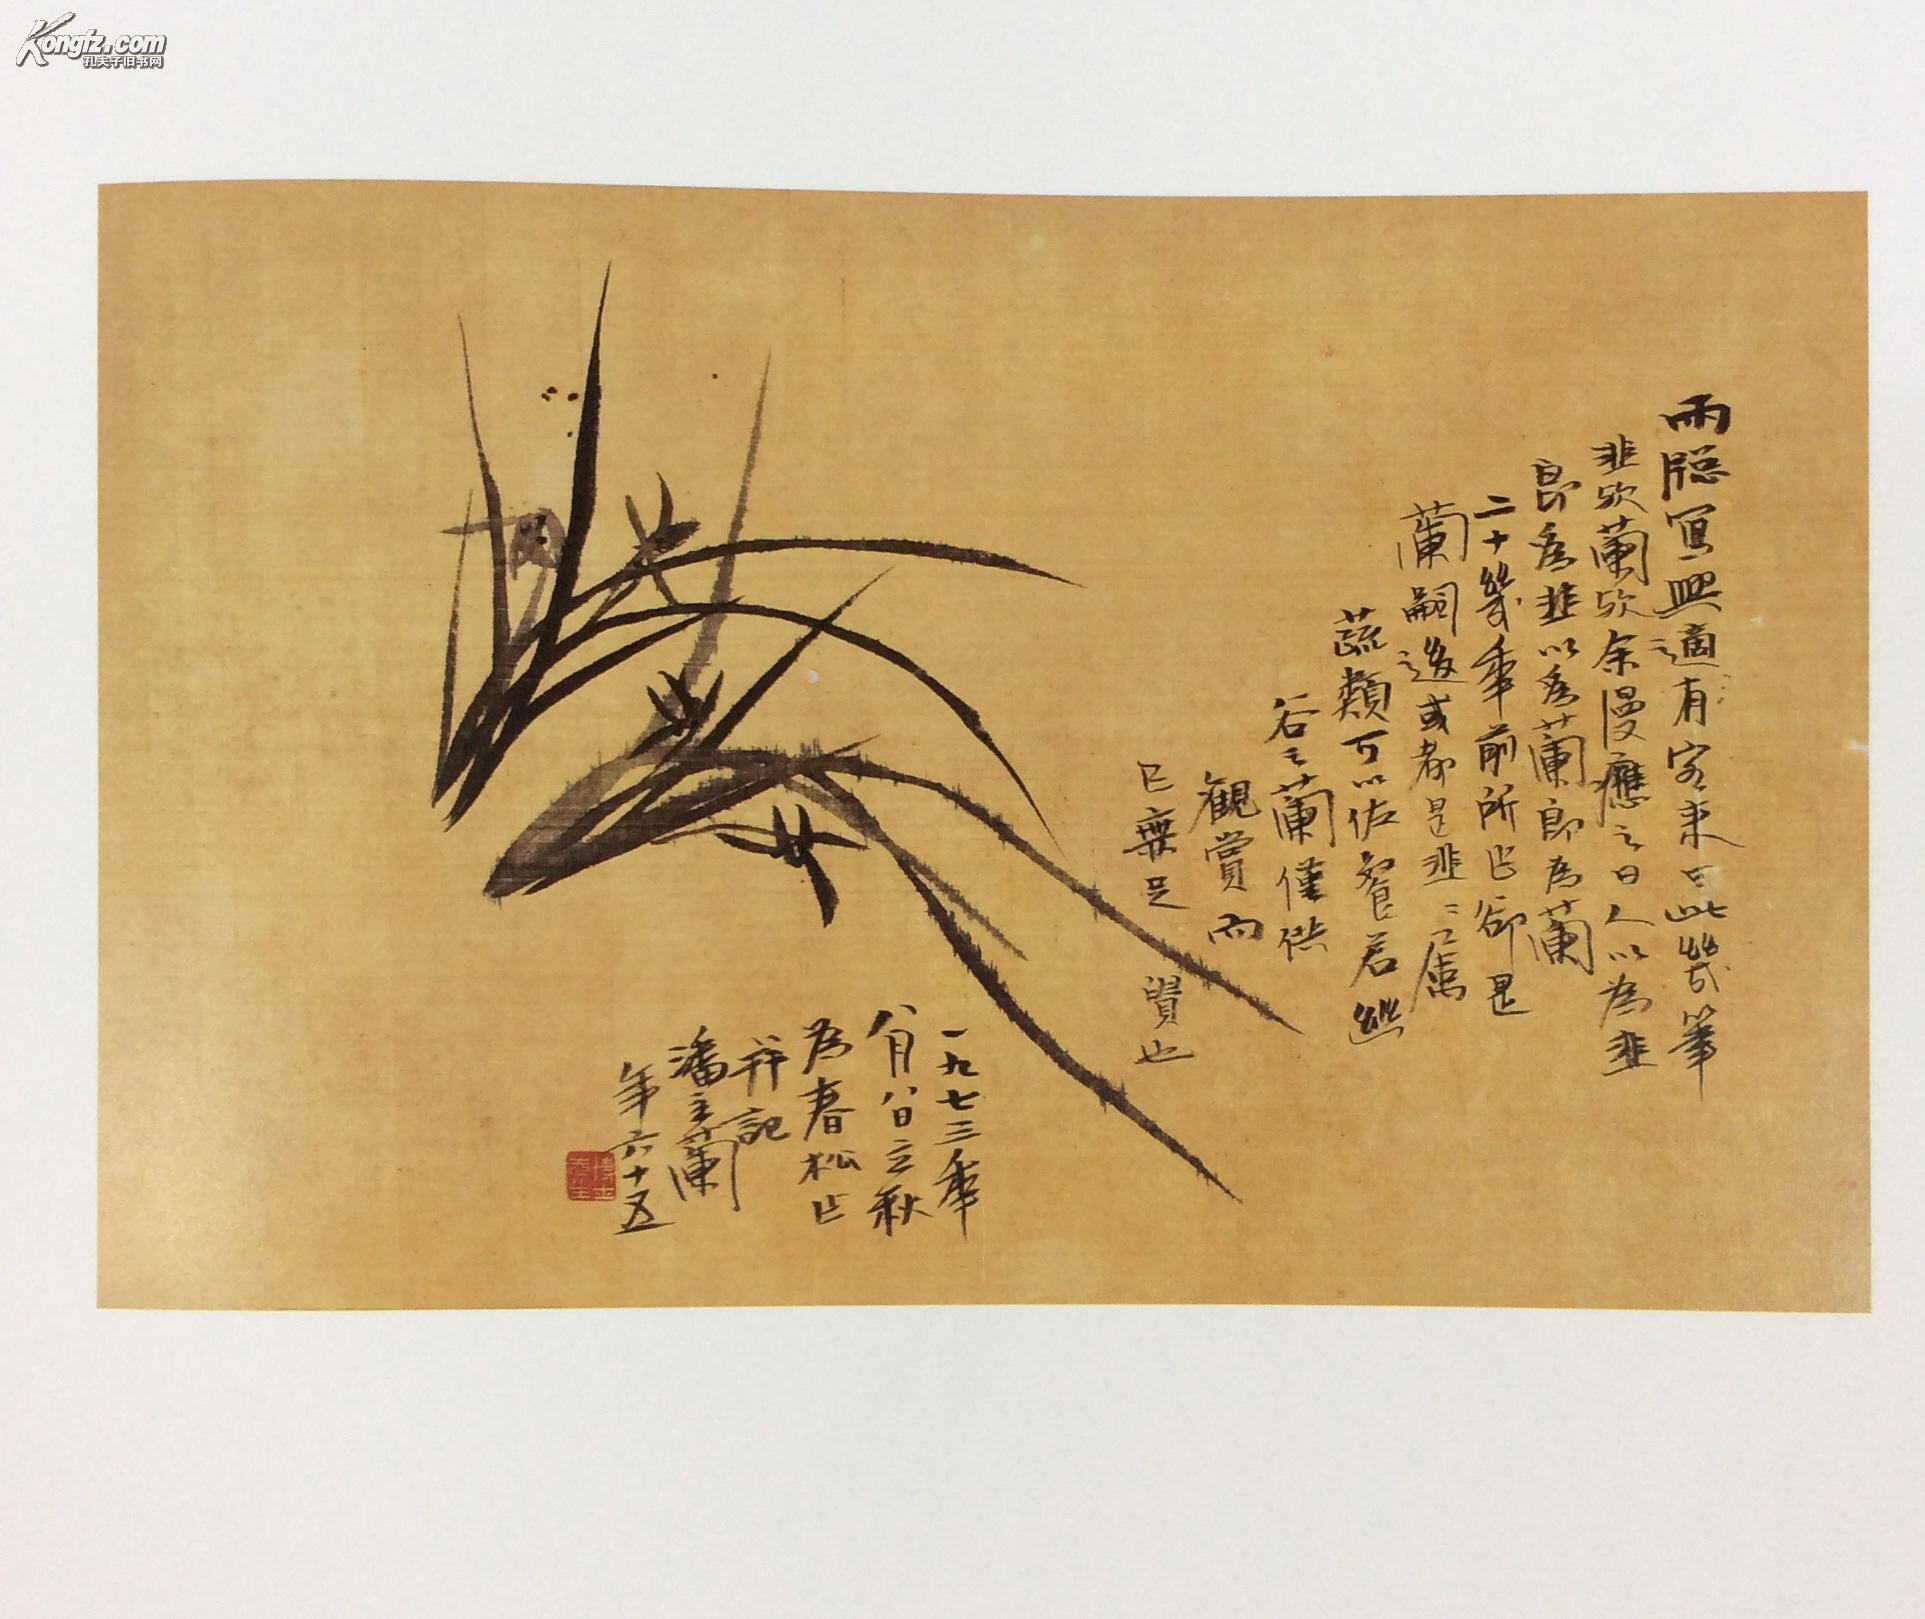 Kongfz.com
孔夫子旧书网
雨牕寫此適有客来曰此幾筆
韭欤蘭欤余漫應之曰人以為韭
即為韭以為蘭即為蘭
二十幾年前所作卻是
蘭嗣後或都是韭韭属
蔬類可以佐餐若幽
谷之蘭僅供
觀賞而
已無足
贵也
一九七三年
八月八日立秋
为春松作
并記
潘主蘭
年六十五